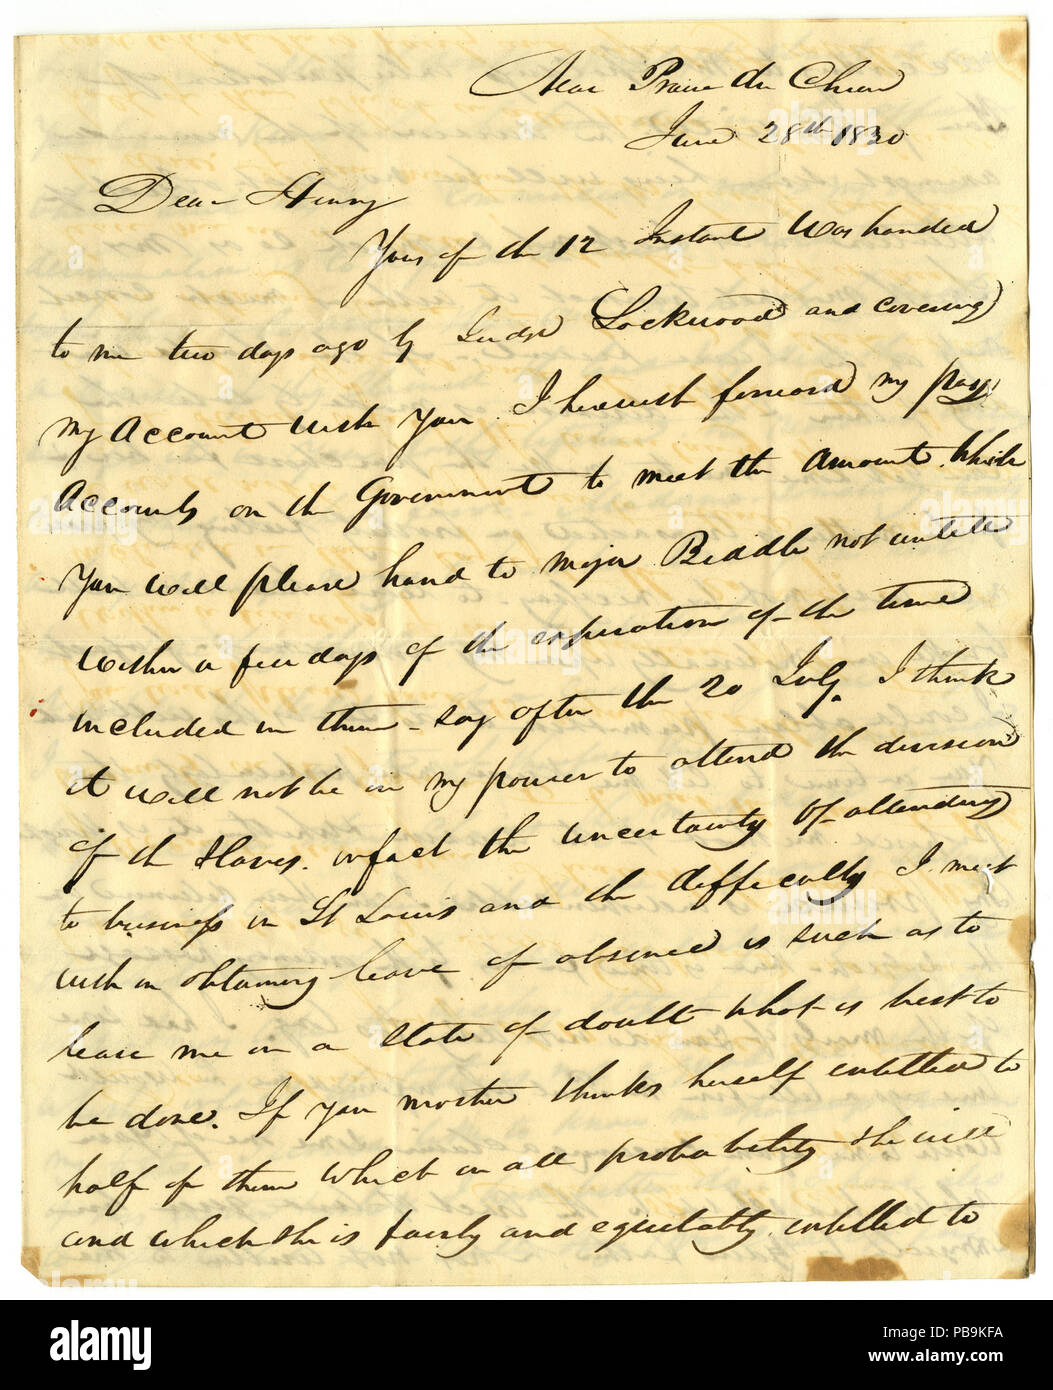 Near Prarie du Chien
June 28th 1830
Dear Henry
Yours of the 12 Instant was handed
to me two days ago by Judge Lockwood and covering
my Account with you. I herewith forward my pay
Accounts on the Government to meet the amount. Which
You will please hand to major Biddle not untill
within a few days of the expiration of the time
included in them - say after the 20 July. I think
it will not be in my power to attend the division
of the slaves. infact the uncertainty of attending
to business in St Louis and the difficulty I meet
with in obtaining leave of absence is such as to
leave me in a state of doubt what is best to
be done. If your mother thinks herself entitled to
half of them which in all probability she will
and which she is fairly and equitably intitled to
alamy
Image ID: PB9KFA
www.alamy.com